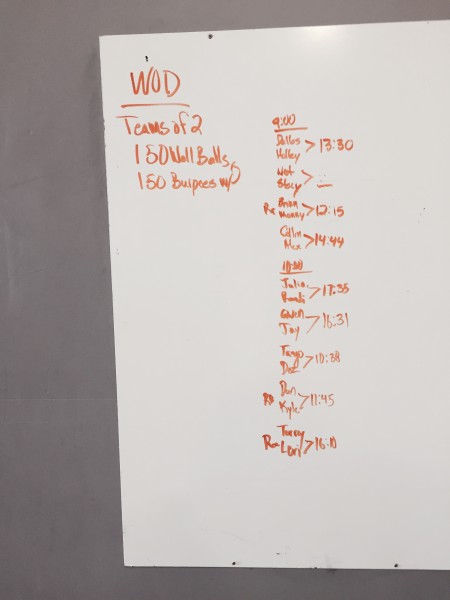 WOD
Teams of 2
150 Wall Balls
150 Burpees w/
9:00
Dallas
Holley > 13:30
Nat
Stacy >
Rx Brian
Manny > 12:15
Collin
Alex > 14:44
10:00
Julia
> 17:35
Gwen
Jay > 16:31
Tango
Doz > 10:38
Dan
Kyle > 11:45
Rx Tammy
Lori > 16:10